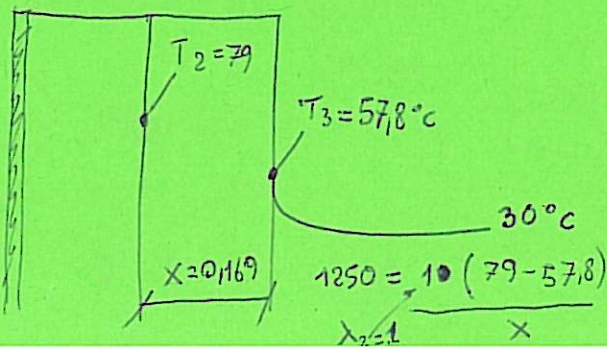 T2=79
T3=57,8°C
30°C
X=0,169
1250 = 1 (79-57,8)
X
λ2=1